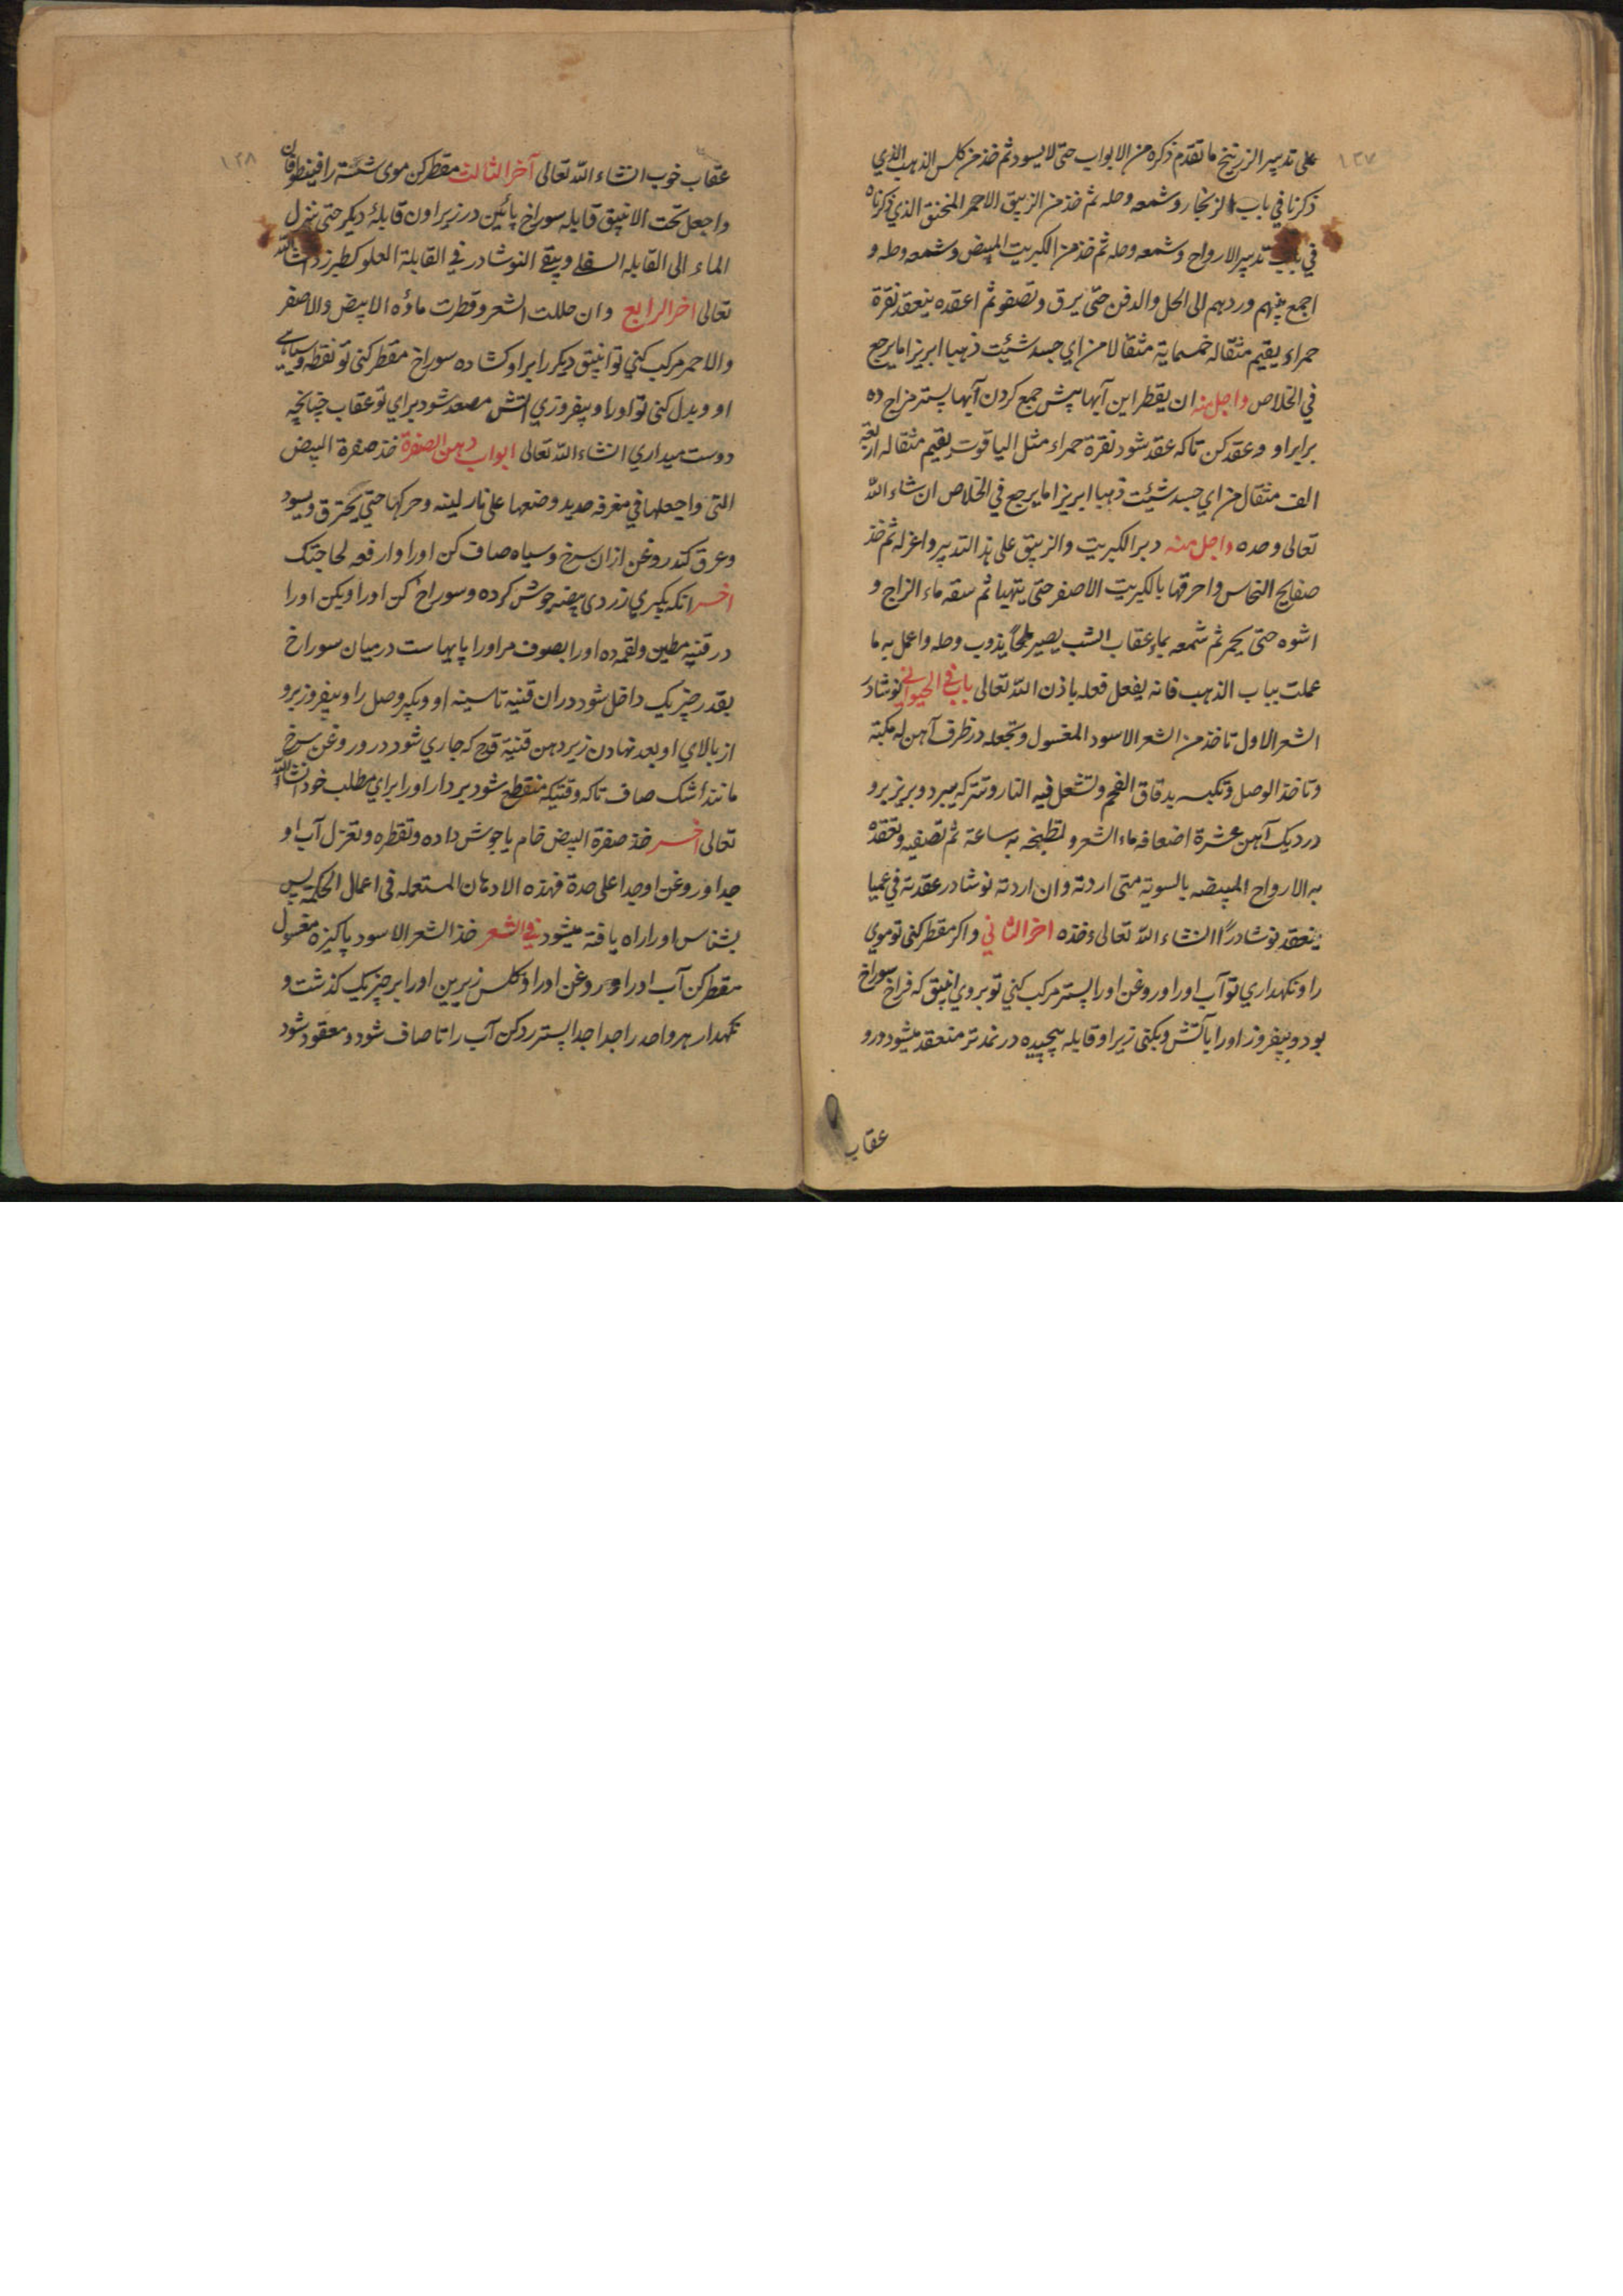 ١٢٧
على تدبير الزرنيخ ما تقدم ذكره من الابواب حتى لا يسود ثم خذ من كلس الذهب الذي
ذكرنا في باب الزنجار وشمعه وحله ثم خذ من الزيبق الاحمر المخنق الذي ذكرناه
في باب تدبير الارواح وشمعه وحله ثم خذ من الكبريت المبيض وشمعه وحله و
اجمع بينهم وردهم الى الحل والدفن حتى يرق وتصفو ثم اعقده ينعقد نقرة
حمراء يقيم مثقاله خمسماية مثقالا من اي جسد شئيت ذهبا ابريزا ما يرجع
في الخلاص واجل منه ان يقطر اين آبها پيش جمع كردن آبها پستر مزاج ده
برابر او و عقد كن تاكه عقد شود نقرة حمراء مثل الياقوت يقيم مثقاله اربعة
الف مثقال من اي جسد شئيت ذهبا ابريزا ما يرجع في الخلاص ان شاء الله
تعالى وحده واجل منه دبر الكبريت والزيبق على هذا التدبير واعزله ثم خذ
صفايح النحاس واحرقها بالكبريت الاصفر حتى يتهيا ثم سقه ماء الزاج و
اشوه حتى يحمر ثم شمعه بماء عقاب الشب يصير ملحا يذوب وحله واعمل به ما
عملت بباب الذهب فانه يفعل فعله باذن الله تعالى باب في الحيواني نوشادر
الشعر الاول تاخذ من الشعر الاسود المغسول وتجعله در ظرف آهن له مكبة
وتاخذ الوصل وتكبسه بدقاق الفحم وتشعل فيه النار وتتركه يبرد وبريز برو
در ديك آهن عشرة اضعافه ماء الشعر و تطبخه به ساعة ثم تصفيه وتعقده
به الارواح المبيضه بالسوية متى اردته وان اردته نوشادر عقدته في عميا
ينعقد نوشادرًا انشاء الله تعالى خذه اخر الثاني واكر مقطر كنى تو موي
را ونكهداري تو آب اورا وروغن اورا پستر مركب كني تو بروي انبيق كه فراخ سوراخ
بود وبيفروز اورا بآتش وبكنى زير او قابله پيچيده در نمد تر منعقد ميشود درو
عقاب
١٢٨
عقاب خوب انشاء الله تعالى آخر الثالث مقطر كن موى شسته را فينطوفان
واجعل تحت الانبيق قابله سوراخ پائين در زير اون قابلهٔ ديكر حتى ينزل
الماء الى القابله السفلى ويبقى النوشادر في القابلة العلو كطبرزد انشاء الله
تعالى اخر الرابع وان حللت الشعر وقطرت ماؤه الابيض والاصفر
والاحمر مركب كني تو انبيق ديكر را برابر او كشاده سوراخ مقطر كنى تو نقطه وسياهى
او وبدل كنى تو اورا و بيفروزي آتش مصعد شود براي تو عقاب چنانچه
دوست ميداري انشاء الله تعالى ابواب دهن الصفرة خذ صفرة البيض
التى واجعلها في مغرفه حديد وضعها على نار لينه وحركها حتي يحترق ويسود
وعرق كند روغن ازان سرخ وسياه صاف كن اورا وارفعه لحاجتك
اخر انكه بكيري زردى بيضه جوش كرده و سوراخ كن اورا وبكن اورا
در قنينه مطين ولقمه ده اورا بصوف مر اورا پايهاست درميان سوراخ
بقدر چيزيك داخل شود دران قنينه تا سينه او وبكير وصل را وبيفروز برو
از بالاي او بعد نهادن زير دهن قنينة قدح كه جاري شود در و روغن سرخ
مانند اشك صاف تاكه وقتيكه منقطع شود بردار اورا براي مطلب خود انشاء الله
تعالى اخر خذ صفرة البيض خام يا جوش داده وتقطره وتعزل آب او
جدا و روغن او جدا على حدة فهذه الادهان المستعمله فى اعمال الحكمة پس
بشناس اورا راه يافته ميشود في الشعر خذ الشعر الاسود پاكيزه مغسول
مقطر كن آب اورا و روغن اورا وكلس زيرين اورا بر چيزيك كذشت و
نكهدار هر واحد را جدا جدا پستر رد كن آب را تا صاف شود و معقود شود